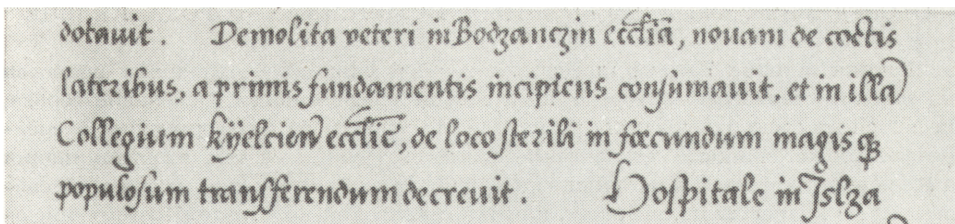 dotauit. Demolita veteri in Bodzanczin eccl̃ia, nouam de coctis
lateribus, a primis fundamentis incipiens consũmauit, et in illa
Collegium kyelcien eccl̃ie, de loco sterili in fœcundum magis qꝫ
populosum transferendum decreuit. Hospitale in Jslza